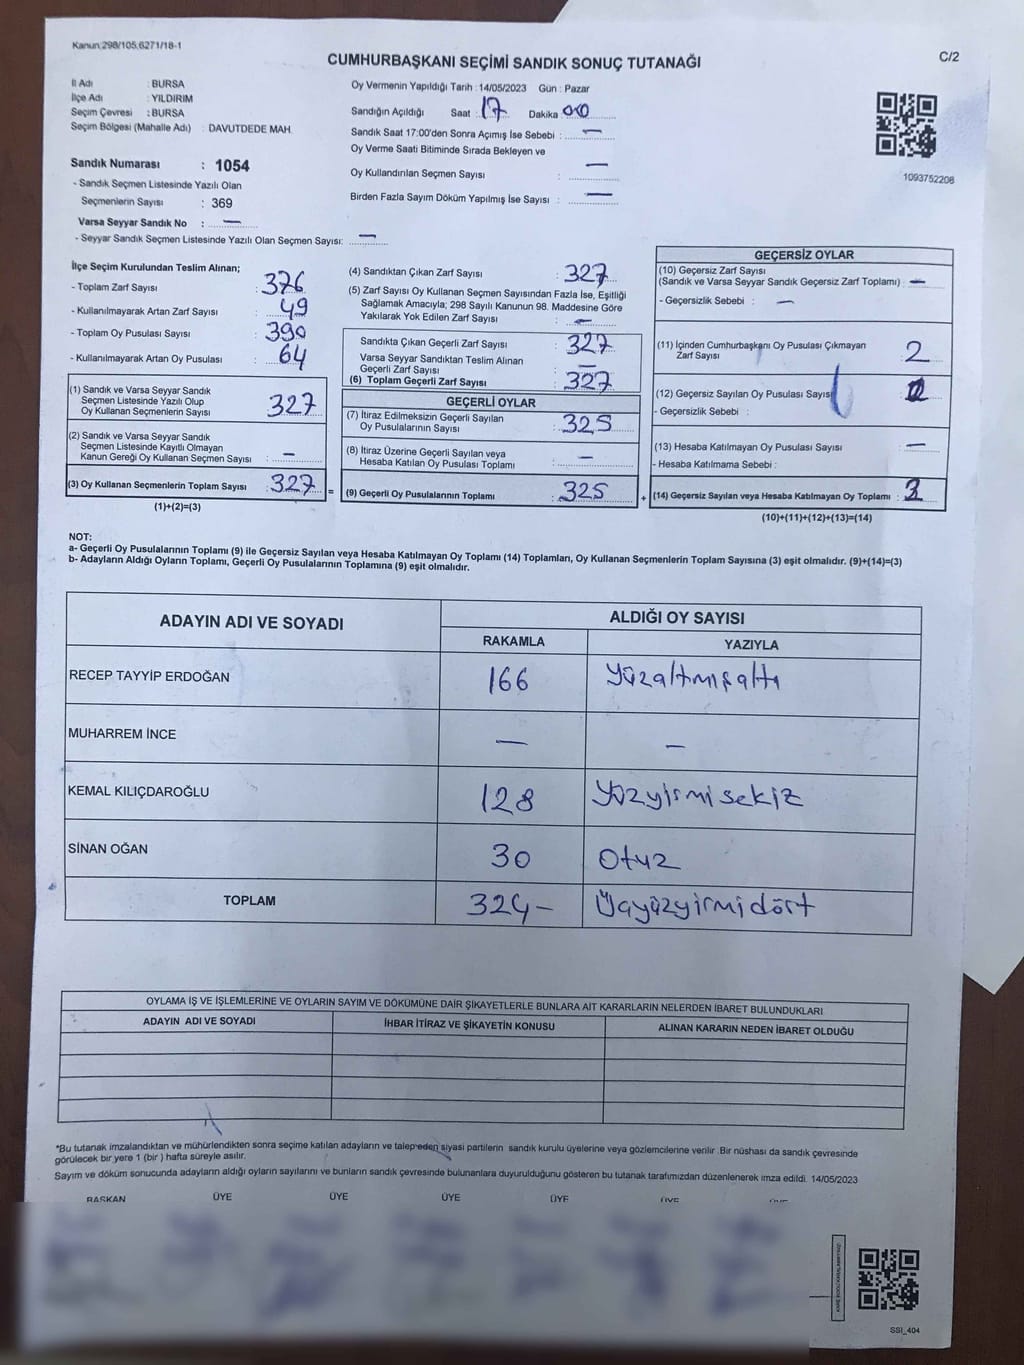 Kanun;298/105,6271/18-1
CUMHURBAŞKANI SEÇİMİ SANDIK SONUÇ TUTANAĞI
C/2
İl Adı : BURSA
İlçe Adı : YILDIRIM
Seçim Çevresi : BURSA
Seçim Bölgesi (Mahalle Adı) : DAVUTDEDE MAH.
Oy Vermenin Yapıldığı Tarih : 14/05/2023 Gün : Pazar
Sandığın Açıldığı Saat : 17 Dakika : 00
Sandık Saat 17:00'den Sonra Açımış İse Sebebi : —
Oy Verme Saati Bitiminde Sırada Bekleyen ve
Oy Kullandırılan Seçmen Sayısı : —
Birden Fazla Sayım Döküm Yapılmış İse Sayısı : —
1093752208
Sandık Numarası : 1054
- Sandık Seçmen Listesinde Yazılı Olan
Seçmenlerin Sayısı : 369
Varsa Seyyar Sandık No : —
- Seyyar Sandık Seçmen Listesinde Yazılı Olan Seçmen Sayısı: —
İlçe Seçim Kurulundan Teslim Alınan;
- Toplam Zarf Sayısı : 376
- Kullanılmayarak Artan Zarf Sayısı : 49
- Toplam Oy Pusulası Sayısı : 390
- Kullanılmayarak Artan Oy Pusulası : 64
(1) Sandık ve Varsa Seyyar Sandık
Seçmen Listesinde Yazılı Olup
Oy Kullanan Seçmenlerin Sayısı : 327
(2) Sandık ve Varsa Seyyar Sandık
Seçmen Listesinde Kayıtlı Olmayan
Kanun Gereği Oy Kullanan Seçmen Sayısı : —
(3) Oy Kullanan Seçmenlerin Toplam Sayısı : 327 =
(1)+(2)=(3)
(4) Sandıktan Çıkan Zarf Sayısı : 327
(5) Zarf Sayısı Oy Kullanan Seçmen Sayısından Fazla İse, Eşitliği
Sağlamak Amacıyla; 298 Sayılı Kanunun 98. Maddesine Göre
Yakılarak Yok Edilen Zarf Sayısı : —
Sandıkta Çıkan Geçerli Zarf Sayısı : 327
Varsa Seyyar Sandıktan Teslim Alınan
Geçerli Zarf Sayısı : —
(6) Toplam Geçerli Zarf Sayısı : 327
GEÇERLİ OYLAR
(7) İtiraz Edilmeksizin Geçerli Sayılan
Oy Pusulalarının Sayısı : 325
(8) İtiraz Üzerine Geçerli Sayılan veya
Hesaba Katılan Oy Pusulası Toplamı : —
(9) Geçerli Oy Pusulalarının Toplamı : 325 +
GEÇERSİZ OYLAR
(10) Geçersiz Zarf Sayısı
(Sandık ve Varsa Seyyar Sandık Geçersiz Zarf Toplamı) : —
- Geçersizlik Sebebi : —
(11) İçinden Cumhurbaşkanı Oy Pusulası Çıkmayan
Zarf Sayısı 2
(12) Geçersiz Sayılan Oy Pusulası Sayısı
- Geçersizlik Sebebi :
(13) Hesaba Katılmayan Oy Pusulası Sayısı —
- Hesaba Katılmama Sebebi :
(14) Geçersiz Sayılan veya Hesaba Katılmayan Oy Toplamı :
(10)+(11)+(12)+(13)=(14)
NOT:
a- Geçerli Oy Pusulalarının Toplamı (9) ile Geçersiz Sayılan veya Hesaba Katılmayan Oy Toplamı (14) Toplamları, Oy Kullanan Seçmenlerin Toplam Sayısına (3) eşit olmalıdır. (9)+(14)=(3)
b- Adayların Aldığı Oyların Toplamı, Geçerli Oy Pusulalarının Toplamına (9) eşit olmalıdır.
ADAYIN ADI VE SOYADI
ALDIĞI OY SAYISI
RAKAMLA YAZIYLA
RECEP TAYYİP ERDOĞAN 166 Yüzaltmışaltı
MUHARREM İNCE — —
KEMAL KILIÇDAROĞLU 128 Yüzyirmisekiz
SİNAN OĞAN 30 Otuz
TOPLAM 324- Üçyüzyirmidört
OYLAMA İŞ VE İŞLEMLERİNE VE OYLARIN SAYIM VE DÖKÜMÜNE DAİR ŞİKAYETLERLE BUNLARA AİT KARARLARIN NELERDEN İBARET BULUNDUKLARI
ADAYIN ADI VE SOYADI İHBAR İTİRAZ VE ŞİKAYETİN KONUSU ALINAN KARARIN NEDEN İBARET OLDUĞU
*Bu tutanak imzalandıktan ve mühürlendikten sonra seçime katılan adayların ve talep eden siyasi partilerin sandık kurulu üyelerine veya gözlemcilerine verilir .Bir nüshası da sandık çevresinde
görülecek bir yere 1 (bir ) hafta süreyle asılır.
Sayım ve döküm sonucunda adayların aldığı oyların sayılarını ve bunların sandık çevresinde bulunanlara duyurulduğunu gösteren bu tutanak tarafımızdan düzenlenerek imza edildi. 14/05/2023
BAŞKAN ÜYE ÜYE ÜYE ÜYE ÜYE ÜYE
SSI_404